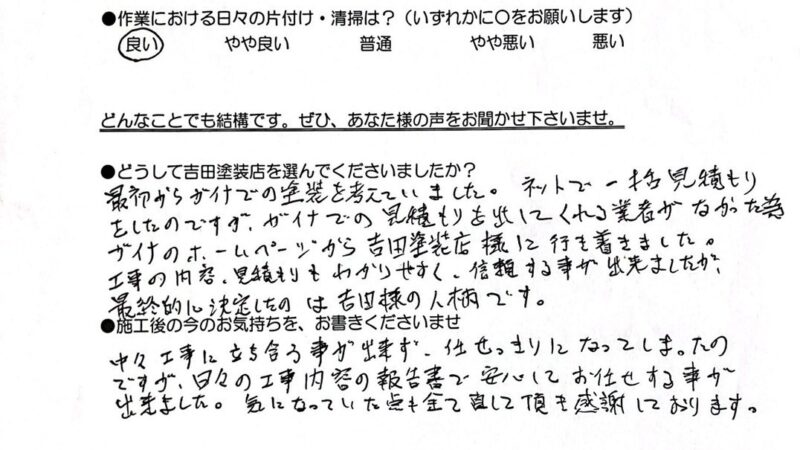 ●作業における日々の片付け・清掃は？（いずれかに〇をお願いします）
良い やや良い 普通 やや悪い 悪い
どんなことでも結構です。ぜひ、あなた様の声をお聞かせ下さいませ。
●どうして吉田塗装店を選んでくださいましたか？
最初からガイナでの塗装を考えていました。ネットで一括見積もり
をしたのですが、ガイナでの見積もりを出してくれる業者がなかった為
ガイナのホームページから吉田塗装店様に行き着きました。
工事の内容、見積もりもわかりやすく、信頼する事が出来ましたが、
最終的に決定したのは吉田様の人柄です。
●施工後の今のお気持ちを、お書きくださいませ
中々工事に立ち合う事が出来ず、任せっきりになってしまったの
ですが、日々の工事内容の報告書で安心してお任せする事が
出来ました。気になっていた点も全て直して頂き感謝しております。